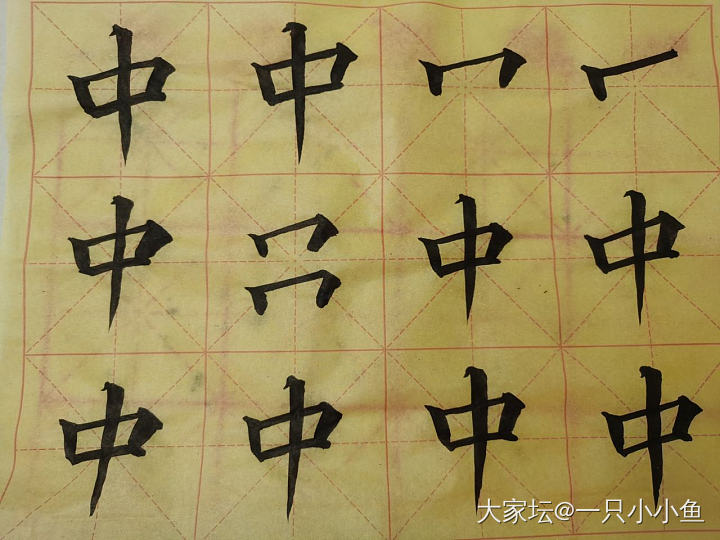 中 中
中 中 中
中 中 中 中
大家坛@一只小小鱼